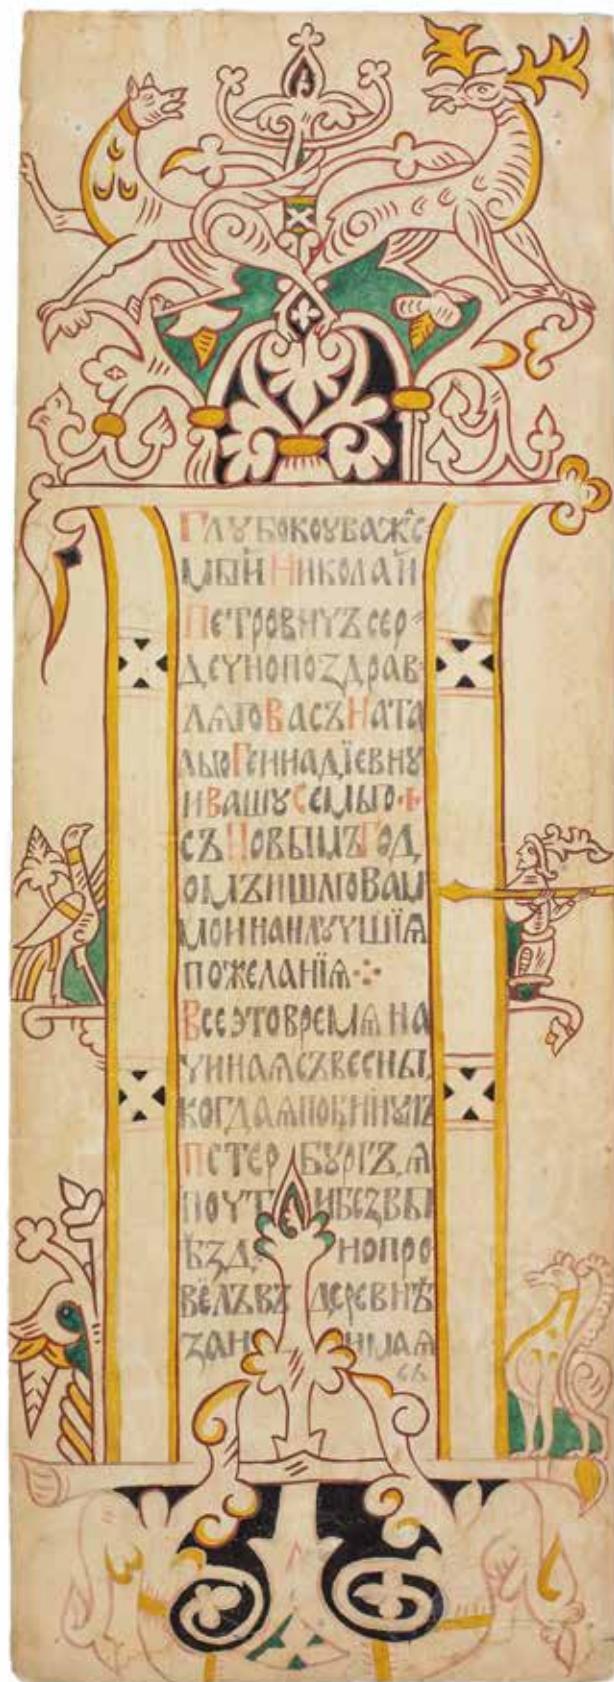 Глубокоуваже-
мый Николай
Петровичъ сер-
дечно поздрав-
ляю Васъ Ната
лью Геннадіевну
и Вашу Семью
съ Новымъ Год
омъ и шлю Вам
мои наилучшія
пожеланія
Все это время на
чиная съ весны,
когда я покинулъ
Петербургъ, я
почти безвы
ѣздно про
вёлъ въ деревнѣ
занимая
сь